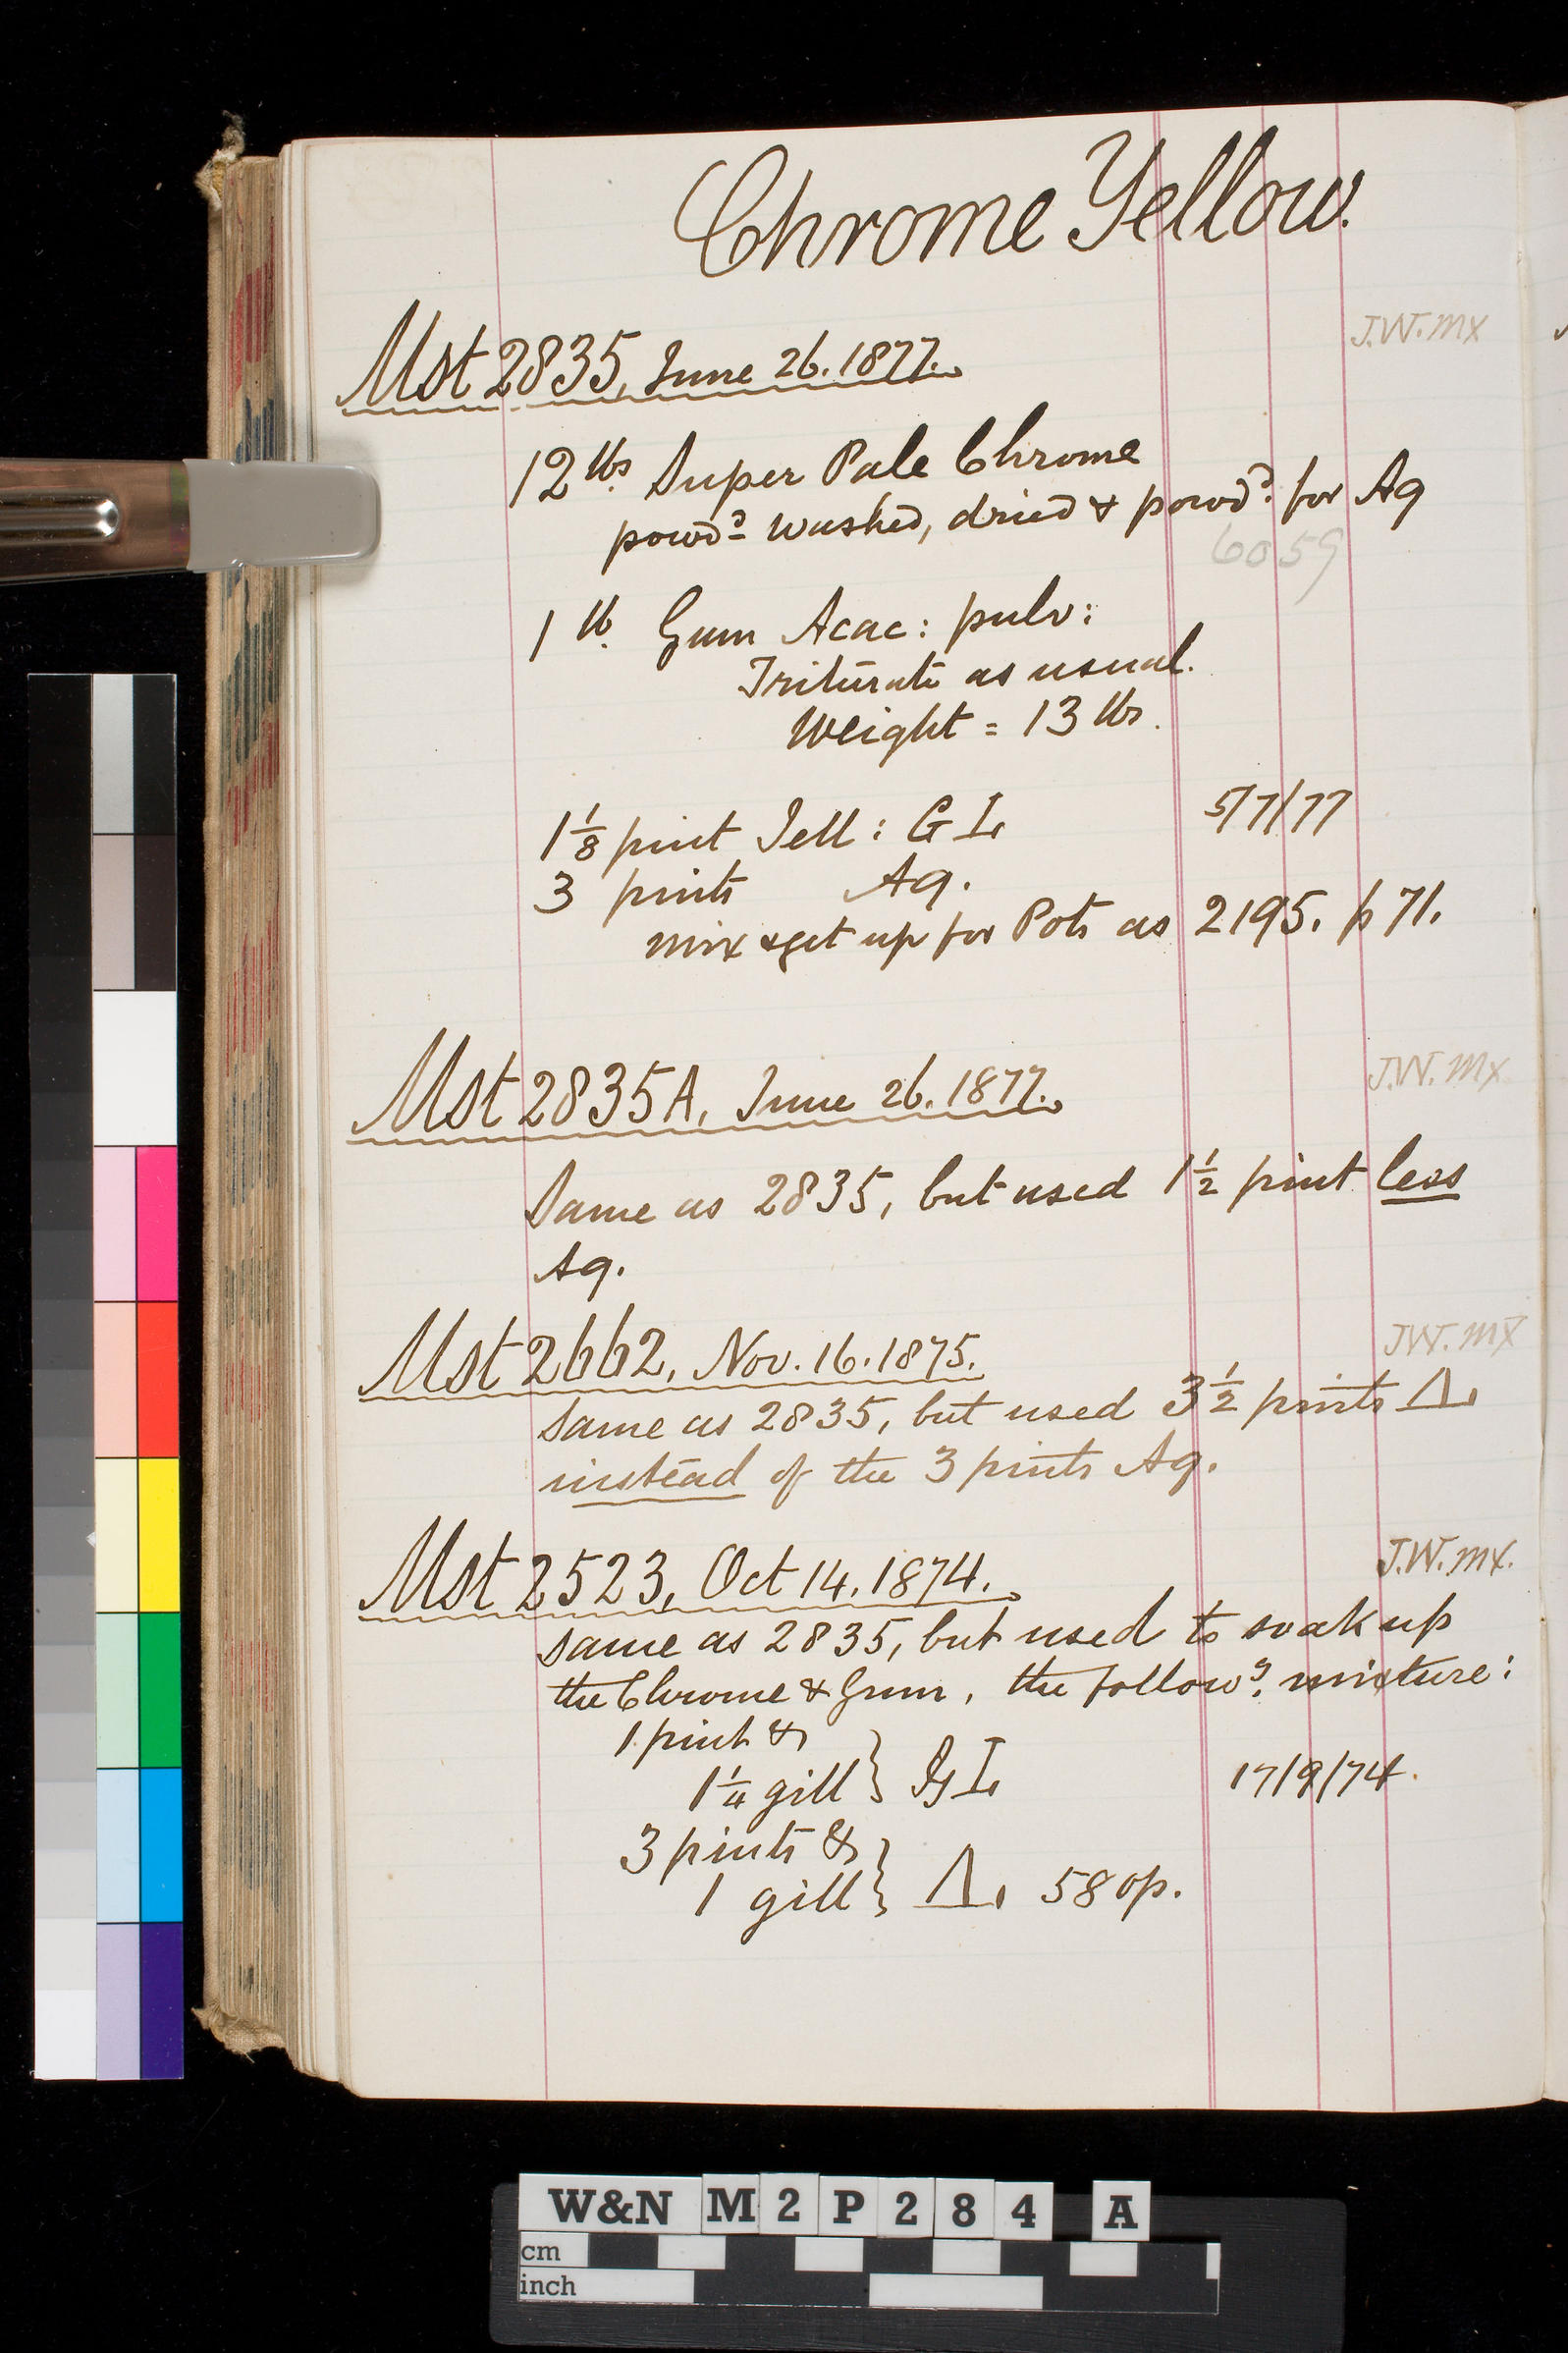 Chrome Yellow.
J.W. mx
Mst 2835, June 26. 1877.
12 lbs. Super Pale Chrome
powd. washed, dried & powd. for Aq
6059
1 lb. Gum Acac: pulv:
Triturate as usual.
Weight = 13 lbs.
1 1/8 pint Jell: G I, 5/7/77
3 pints Aq.
mix & get up for Pots as 2195. p 71.
J.W. mx
Mst 2835A, June 26. 1877.
Same as 2835, but used 1 1/2 pint less
Aq.
J.W. mx
Mst 2662, Nov. 16. 1875.
Same as 2835, but used 3 1/2 pints Δ.
instead of the 3 pints Aq.
J.W. mx.
Mst 2523, Oct 14. 1874.
Same as 2835, but used to soak up
the Chrome & Gum, the followg. mixture:
1 pint &
1 1/4 gill } I, 17/9/74.
3 pints &
1 gill } Δ. 58 op.
W&N M2P284 A
cm
inch